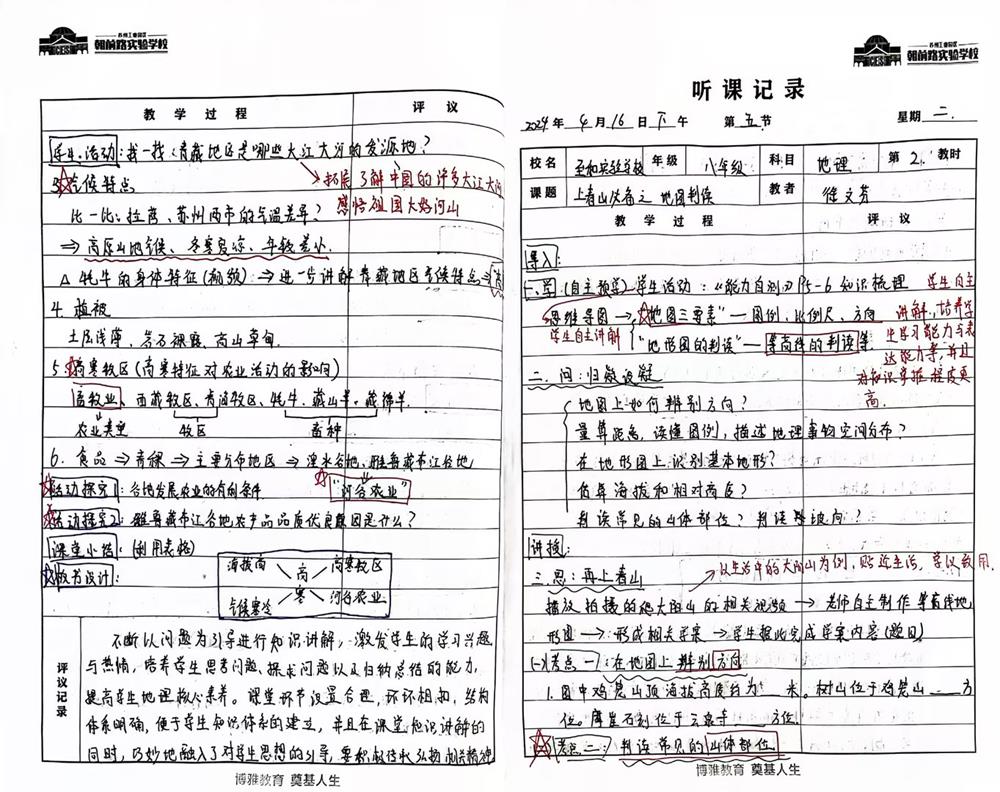 苏州工业园区
朝前路实验学校
教学过程 评议
学生活动:找一找:青藏地区是哪些大江大河的发源地?
拓展了解中国的许多大江大河
3.气候特点
感悟祖国大好河山
比一比:拉萨、苏州两市的气温差异?
⇒高原山地气候、冬寒夏凉、年较差小
△牦牛的身体特征(视频)⇒进一步讲解青藏地区气候特点
4.植被
土层浅薄、岩石裸露、高山草甸
5.高寒牧区(高寒特征对农业活动的影响)
畜牧业、西藏牧区、青海牧区、牦牛、藏山羊、藏绵羊
农业类型 牧区 畜种
6.食品⇒青稞⇒主要分布地区⇒湟水谷地、雅鲁藏布江谷地
活动探究1:谷地发展农业的有利条件 "河谷农业"
活动探究2:雅鲁藏布江谷地农产品品质优良原因是什么?
课堂小结:(利用表格)
板书设计:
海拔高 高 高寒牧区
气候寒冷 寒 河谷农业
评议记录
不断以问题为引导进行知识讲解,激发学生的学习兴趣
与热情,培养学生思考问题、探求问题以及归纳总结的能力,
提高学生地理核心素养。课堂环节设置合理,环环相扣,结构
体系明确,便于学生知识体系的建立,并且在课堂知识讲解的
同时,巧妙地融入了对学生思想的引导,要积极传收弘扬相关精神
博雅教育 奠基人生
苏州工业园区
朝前路实验学校
听课记录
2024年4月16日下午 第五节 星期二
校名 至和实验学校 年级 八年级 科目 地理 第2教时
课题 上看山必看之地图判读 教者 徐文芬
教学过程 评议
导入:
一、学:(自主预学)学生活动:《能力自测》P5-6知识梳理
学生自主
思维导图→"地图三要素"—图例、比例尺、方向
讲解,培养学
学生自主讲解 "地形图的判读"—等高线的判读等
生学习能力与表
达能力等,并且
二、问:归纳设疑
对知识掌握程度更
高.
地图上如何辨别方向?
量算距离,读懂图例,描述地理事物空间分布?
在地形图上识别基本地形?
估算海拔和相对高度?
判读常见的山体部位?判读坡向?
讲授:
以生活中的大阳山为例,贴近生活,学以致用.
三、思:再上看山
播放拍摄的爬大阳山的相关视频→老师自主制作等高线地
形图→形成相关学案→学生据此完成学案内容(题目)
(一)考点一:在地图上辨别方向
1.图中鸡笼山顶海拔高度约为__米。树山位于鸡笼山___方
位。摩崖石刻位于云泉寺___方位
考点二:判读常见的山体部位
博雅教育 奠基人生